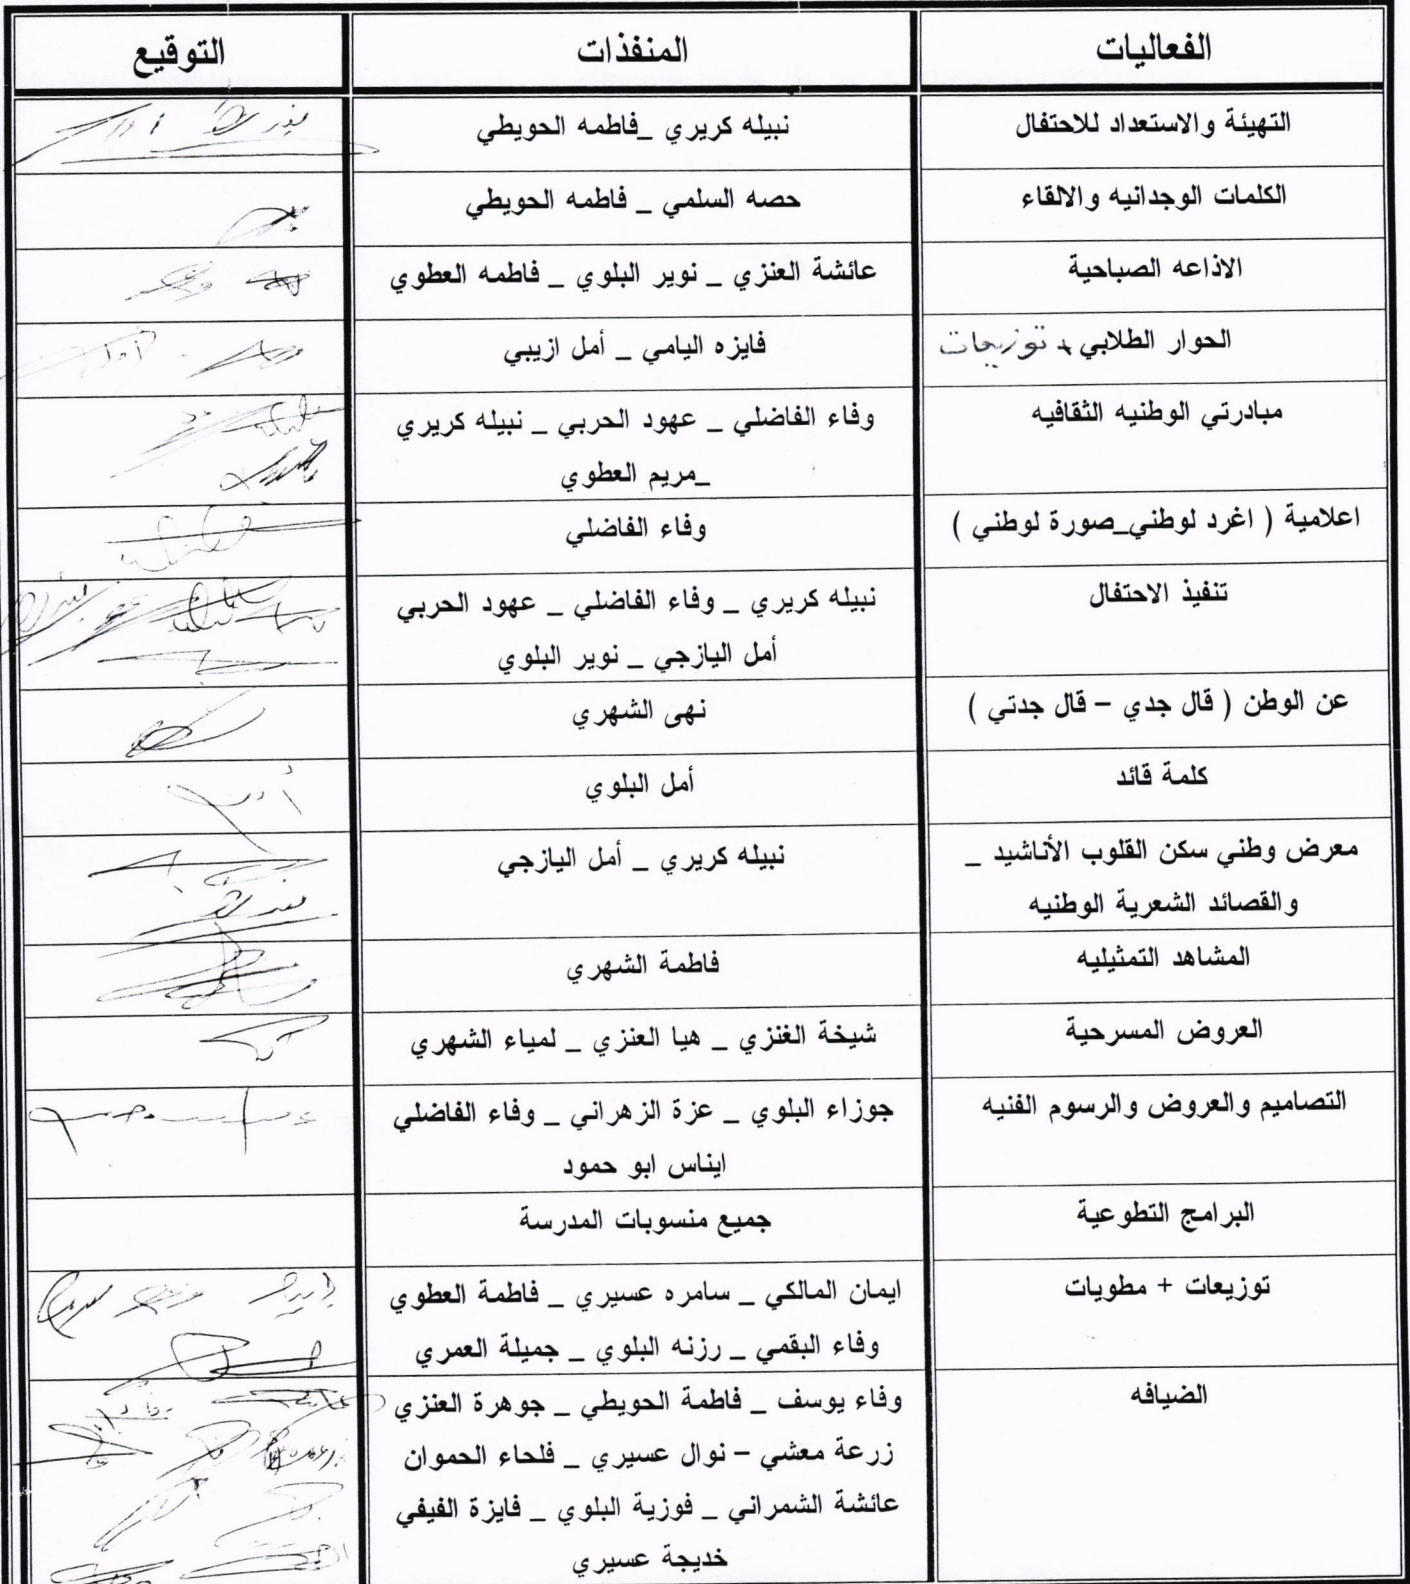 الفعاليات المنفذات التوقيع
التهيئة والاستعداد للاحتفال نبيله كريري _فاطمه الحويطي
الكلمات الوجدانيه والالقاء حصه السلمي _ فاطمه الحويطي
الاذاعه الصباحية عائشة العنزي _ نوير البلوي _ فاطمه العطوي
الحوار الطلابي + توزيعات فايزه اليامي _ أمل ازيبي
مبادرتي الوطنيه الثقافيه وفاء الفاضلي _ عهود الحربي _ نبيله كريري
_مريم العطوي
اعلامية ( اغرد لوطني_صورة لوطني ) وفاء الفاضلي
تنفيذ الاحتفال نبيله كريري _ وفاء الفاضلي _ عهود الحربي
أمل اليازجي _ نوير البلوي
عن الوطن ( قال جدي – قال جدتي ) نهى الشهري
كلمة قائد أمل البلوي
معرض وطني سكن القلوب الأناشيد _ نبيله كريري _ أمل اليازجي
والقصائد الشعرية الوطنيه
المشاهد التمثيليه فاطمة الشهري
العروض المسرحية شيخة الغنزي _ هيا العنزي _ لمياء الشهري
التصاميم والعروض والرسوم الفنيه جوزاء البلوي _ عزة الزهراني _ وفاء الفاضلي
ايناس ابو حمود
البرامج التطوعية جميع منسوبات المدرسة
توزيعات + مطويات ايمان المالكي _ سامره عسيري _ فاطمة العطوي
وفاء البقمي _ رزنه البلوي _ جميلة العمري
الضيافه وفاء يوسف _ فاطمة الحويطي _ جوهرة العنزي
زرعة معشي – نوال عسيري _ فلحاء الحموان
عائشة الشمراني _ فوزية البلوي _ فايزة الفيفي
خديجة عسيري